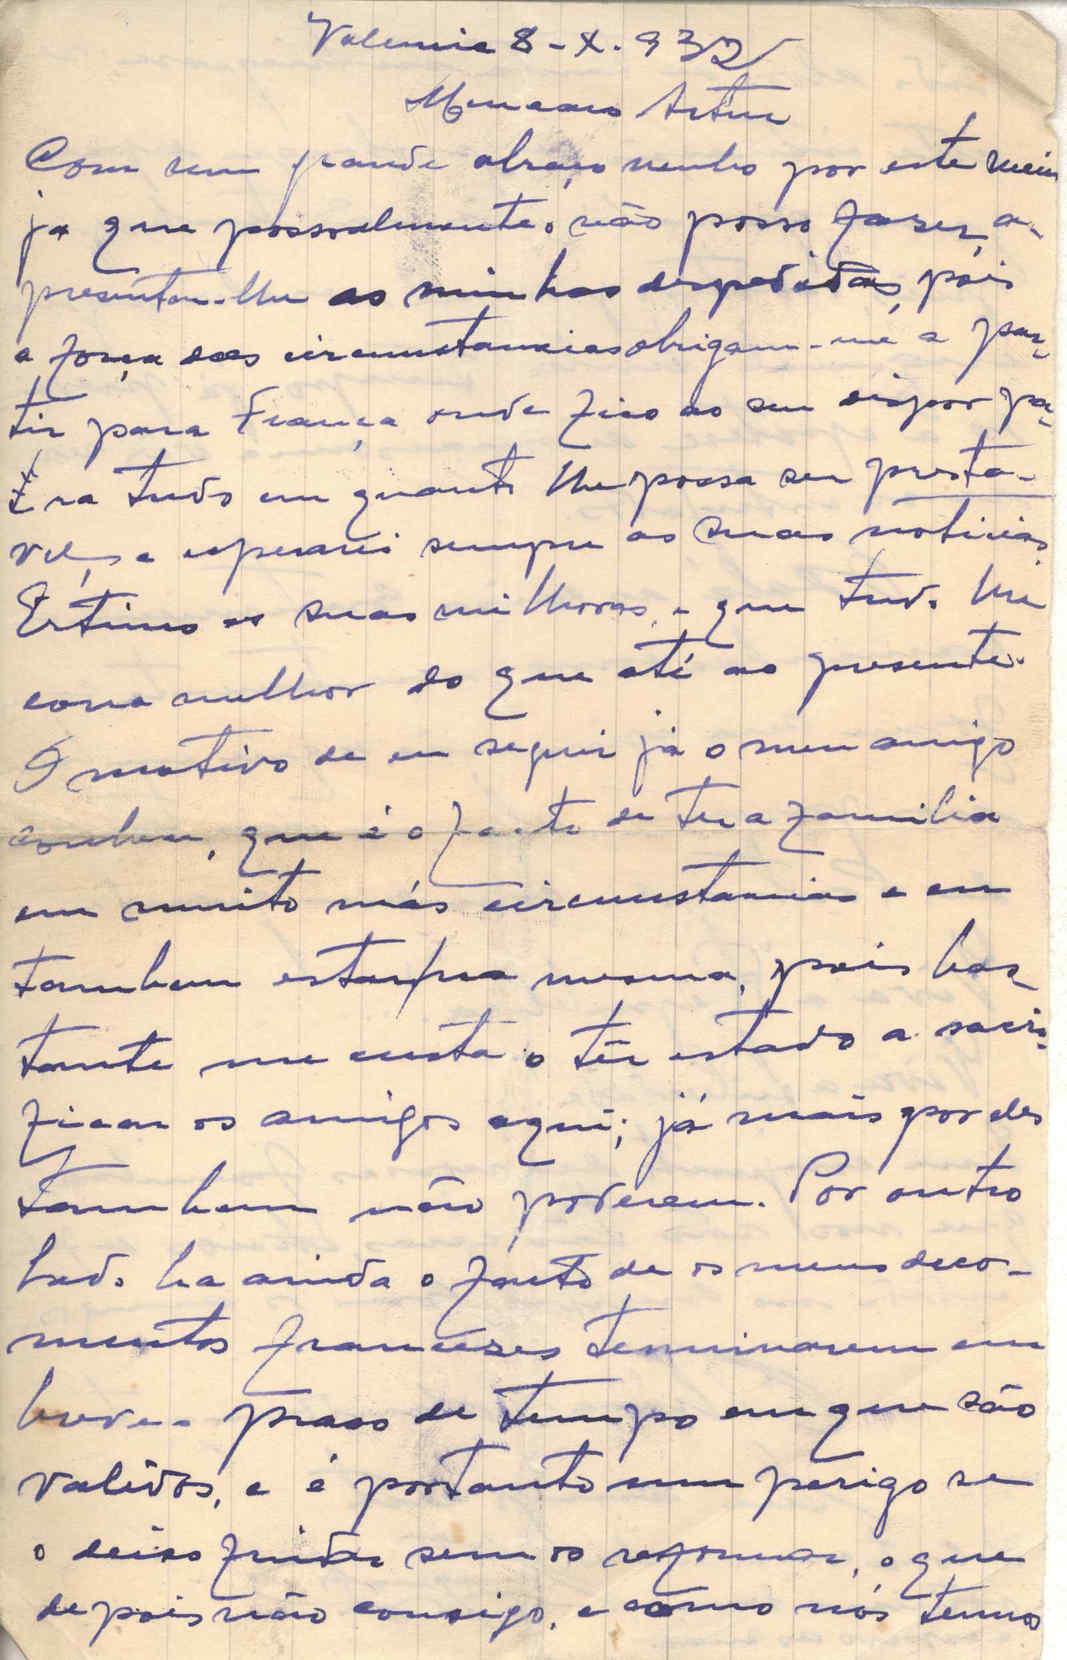 Valencia 8-X-932
Meu caro Artur
Com um grande abraço venho por este meio
ja que pessoalmente, não posso fazer, a-
presentar-lhe as minhas despedidas, pois
a força das circunstancias obrigam-me a par-
tir para França onde fico ao seu dispor pa-
ra tudo em quanto lhe possa ser presta-
vel, e esperarei sempre as suas noticias.
Estimo as suas milhoras, e que tudo lhe
corra melhor do que até ao presente.
O motivo de eu seguir já o meu amigo
conhece, que é o facto de ter a familia
em muito más circunstancias e eu
tambem estar na mesma, pois bas-
tante me custa o têr estado a sacri-
ficar os amigos aqui; já mais por eles
tambem não poderem. Por outro
lado ha ainda o facto de os meus doco-
mentos francezes terminarem em
breve o praso de tempo em que são
validos, e é portanto um perigo se
o deixo findar sem os reformar, o que
depois não consigo, e como nós temos